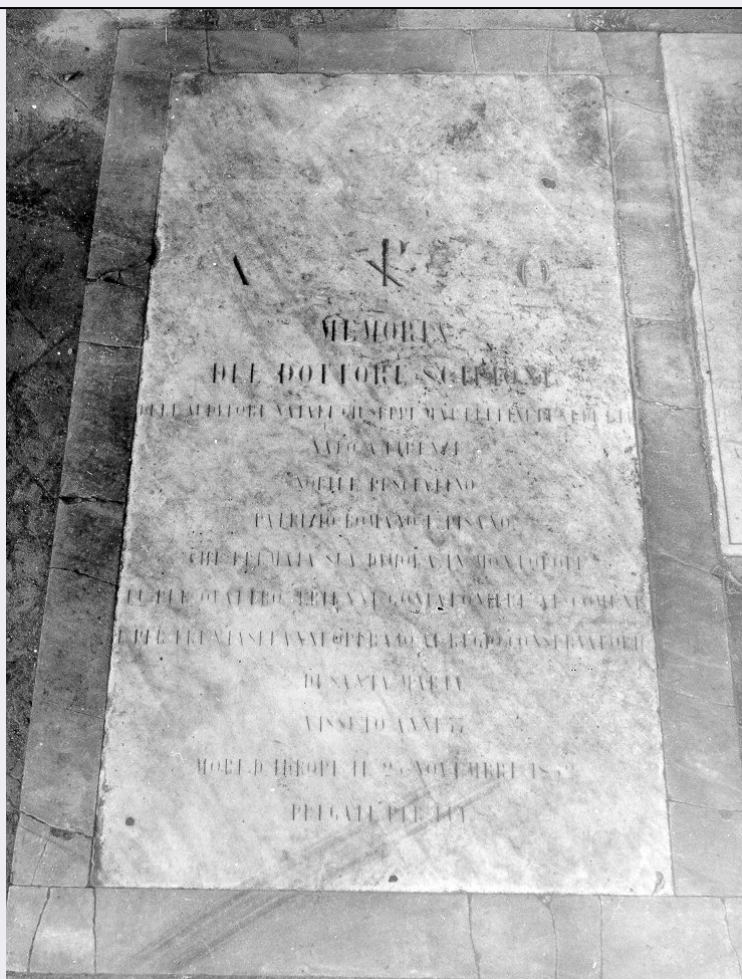 Α ☧ Ω
MEMORIA
DEL DOTTORE SCIPIONE
DELL AUDITORE GIUSEPPE
NATO A FIRENZE
NOBILE PESCIATINO
PATRIZIO ROMANO E PISANO
CHE FERMATA SUA DIMORA IN MONTOPOLI
FU PER QUATTRO TRIENNI GONFALONIERE AL COMUNE
E PER TRENTASEI ANNI OPERAIO AL REGIO CONSERVATORIO
DI SANTA MARTA
VISSUTO ANNI 77
MORI D IDROPE IL NOVEMBRE
PREGATE PER LUI